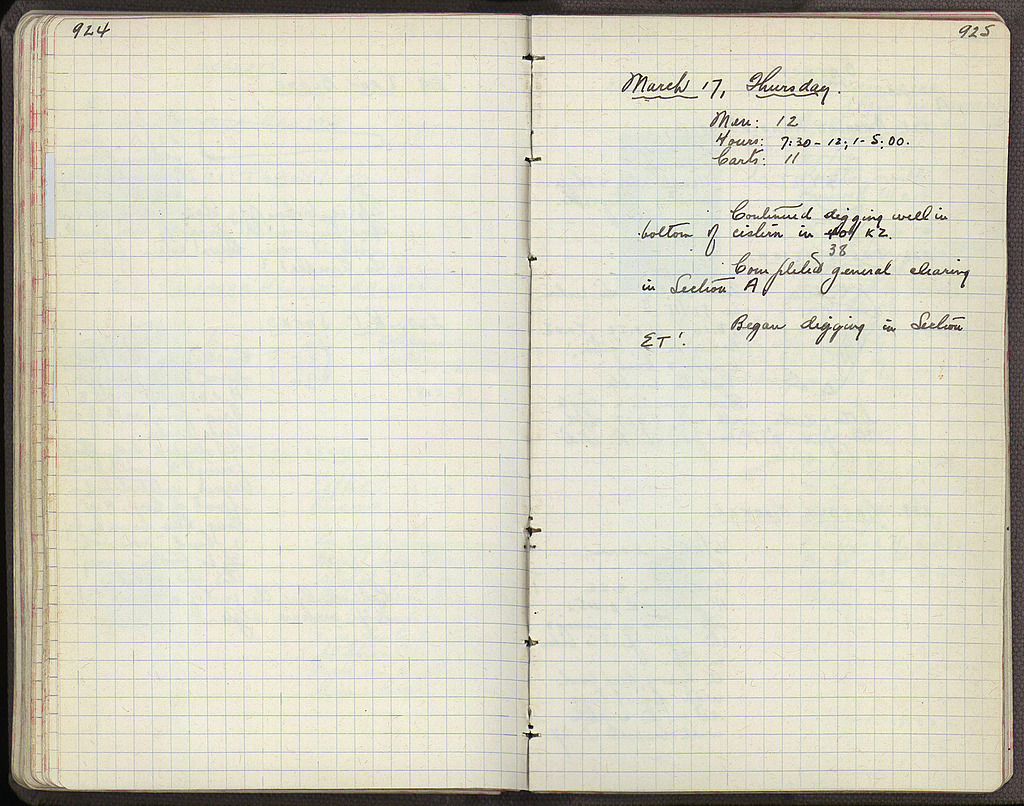 924
925
March 17, Thursday.
Men: 12
Hours: 7:30 - 12; 1 - 5:00.
Carts: 11
Continued digging well in
bottom of cistern in 40/ KZ.
38
Completed general clearing
in Section A
Began digging in Section
ET'.